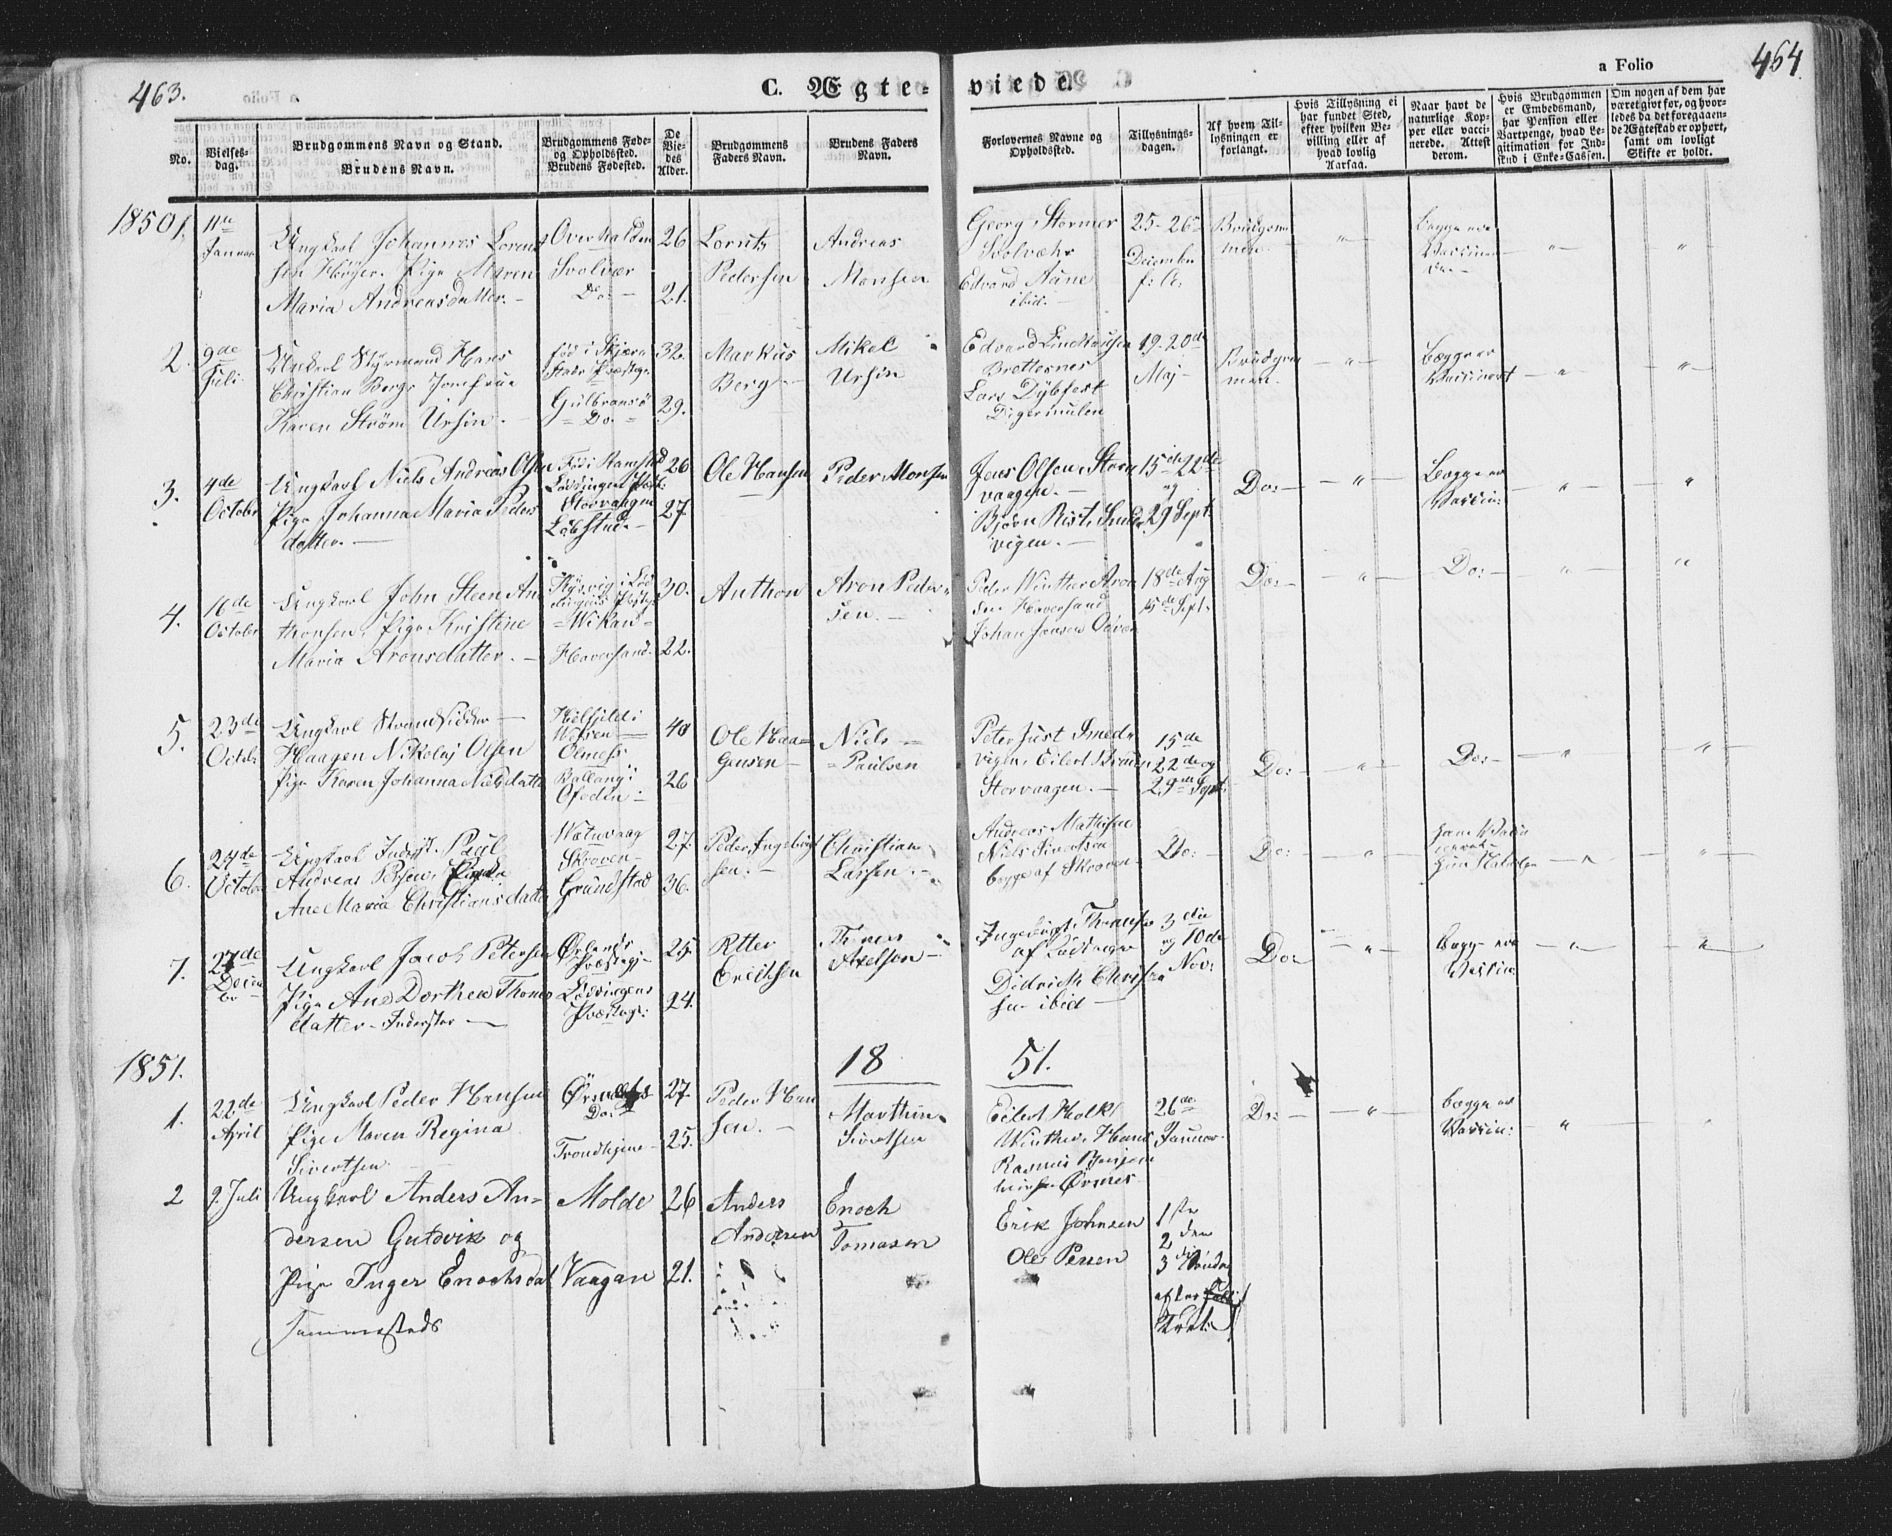 463.
C. Ægte-
viede.
a Folio
464.
No.
Vielses-
dag.
Brudgommens Navn og Stand.
Brudens Navn.
Brudgommens Føde-
og Opholdssted.
Brudens Fødested.
De
Vie-
des
Alder.
Brudgommens
Faders Navn.
Brudens Faders
Navn.
Forlovernes Navne og
Opholdssted.
Tillysnings-
dagen.
Af hvem Til-
lysningen er
forlangt.
Hvis Tillysning ei
har fundet Sted,
efter hvilken Be-
villing eller af
hvad lovlig
Aarsag.
Naar havt de
naturlige Kop-
per eller vacci-
nerede. Attest
derom.
Hvis Brudgommen
er Embedsmand,
har Pension eller
Vartpenge, hvad Le-
gitimation for Ind-
skud i Enke-Cassen.
Om nogen af dem har
været givt før, og hvor-
ledes da det foregaaen-
de Ægteskab er ophørt,
samt om lovligt
Skifte er holdt.
1850
1.
11te
Januar
Ungkarl Johannes Lorent
sen Høyer. Pige Maren
Maria Andreasdatter.
Overhalden
Svolvær
Do:
26
21.
Lorntz
Pedersen
Andreas
Monsen
Georg Størmer
Svolvæhr
Edvard Aune
ibid.
25-26
Decembr
f. A.
Brudgom
men
Begge ere
2.
9de
Juli
Ungkarl Styrmand Hans
Christian Berg. Jomfrue
Karen Strøm Ursin.
fød i Skjær
stads Præstegj.
Gulbransø
Do.
32.
29.
Markus
Berg
Mikal
Ursin
Edvard Lindthausen
Brettesnes
Lars Dybfest
Digermulen
19-20de
Maj
Brudgom
men.
Begge er
Vaccineret
3.
4de
October
Ungkarl Niels Andreas Olsen
Pige Johanna Maria Peders
datter.
Storvaagen
26
27
Ole Hansen
Peder Monsen
Jens Olsen, Stor
vaagen.
Bjørn Rist, Smed
vigen.
15de 22de
og
29 Sept.
Do:
Begge er
Vaccin:
4.
16de
October
Ungkarl John Steen An
thonsen, Pige Kristine
Maria Aronsdatter.
Haversand.
30.
22.
Anthon
Aron Peder-
sen.
Peder Winther Aron
sen Haversand
Johan Jensen
18de Aug
15de Sept.
Do:
Do:
5.
23de
Octbr
Ungkarl Strandsidder
Haagen Nikolaj Olsen
Pige Karen Johanna Nielsdatte
Ballang i
Ofoden
40
26
Ole Haa-
gensen
Niels
Paulsen
Peter Just Smed-
vigen, Eilert Bruun
Storvaagen.
15de
22de og
29de Sept.
Do:
Do:
6.
24de
October
Ungkarl Inderst. Paul
Andreas Persen, Pige
Ane Maria Christiansdatter
Skroven
Grundstad
27.
36.
Peder Ingebrigt
sen.
Christian
Larsen.
Andreas Mathisen
Niels Sivertsen
begge af Skroven
Do:
Do:
7.
27de
Decem
br
Ungkarl Jacob Petersen
Pige Ane Dorthea Thomas
datter - Inderster
Ørlands
Præstegj.
Lødingens
Præstegj:
25
24.
Petter
Erichsen
Thomas
Axelson
Didrich Christen
sen ibid
3die
og 10de
Nov:
Do:
Begge ere
Vaccin
1851.
18 51.
1.
22de
April
Ungkarl Peder Hansen
Pige Maren Regina
Sivertsen.
Do:
Trondhjem
27.
25.
Peder Han
sen.
Marthin
Sivertsen
Eilert Holk
Winther, Hans
Rasmus Benjam
insen Ørsnes
26de
Januar
Do:
begge er
Vaccin:
2
9. Juli
Ungkarl Anders An-
dersen Gutvik og
Pige Inger Enochsdat
sammesteds
Molde
Vaagan
26
21.
Anders
Andersen
Enoch
Tomasen
Erik Johnsen
Ole Persen
1ste
2den
3die Søndag
efter